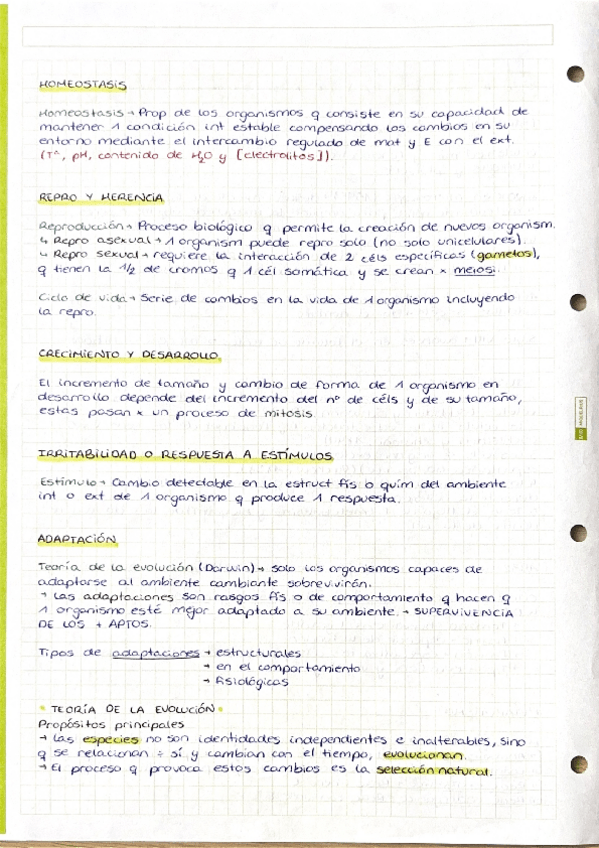 HOMEOSTASIS
Homeostasis → Prop de los organismos q consiste en su capacidad de
mantener 1 condición int estable compensando los cambios en su
entorno mediante el intercambio regulado de mat y E con el ext.
(Tª, pH, contenido de H₂O y [electrolitos]).
REPRO Y HERENCIA
Reproducción → Proceso biológico q permite la creación de nuevos organism.
↳ Repro asexual → 1 organism puede repro solo (no solo unicelulares).
↳ Repro sexual → requiere la interacción de 2 céls específicas (gametos),
q tienen la 1/2 de cromos q 1 cél somática y se crean x meiosi.
Ciclo de vida → Serie de cambios en la vida de 1 organismo incluyendo
la repro.
CRECIMIENTO Y DESARROLLO
El incremento de tamaño y cambio de forma de 1 organismo en
desarrollo depende del incremento del nº de céls y de su tamaño,
estas pasan x un proceso de mitosis.
IRRITABILIDAD O RESPUESTA A ESTÍMULOS
Estímulo → Cambio detectable en la estruct fís o quím del ambiente
int o ext de 1 organismo q produce 1 respuesta.
ADAPTACIÓN
Teoría de la evolución (Darwin) → solo los organismos capaces de
adaptarse al ambiente cambiante sobrevivirán.
→ Las adaptaciones son rasgos fís o de comportamiento q hacen q
1 organismo esté mejor adaptado a su ambiente. → SUPERVIVENCIA
DE LOS + APTOS.
Tipos de adaptaciones → estructurales
→ en el comportamiento
→ fisiológicas
• TEORÍA DE LA EVOLUCIÓN •
Propósitos principales
→ Las especies no son identidades independientes e inalterables, sino
q se relacionan ÷ sí y cambian con el tiempo, evolucionan.
→ El proceso q provoca estos cambios es la selección natural.